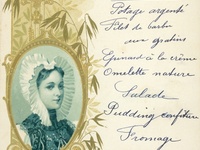 Potage argenté
Filet de barbu
aux gratins
Epinard à la crème
Omelette nature
Salade
Pudding confiture
Fromage